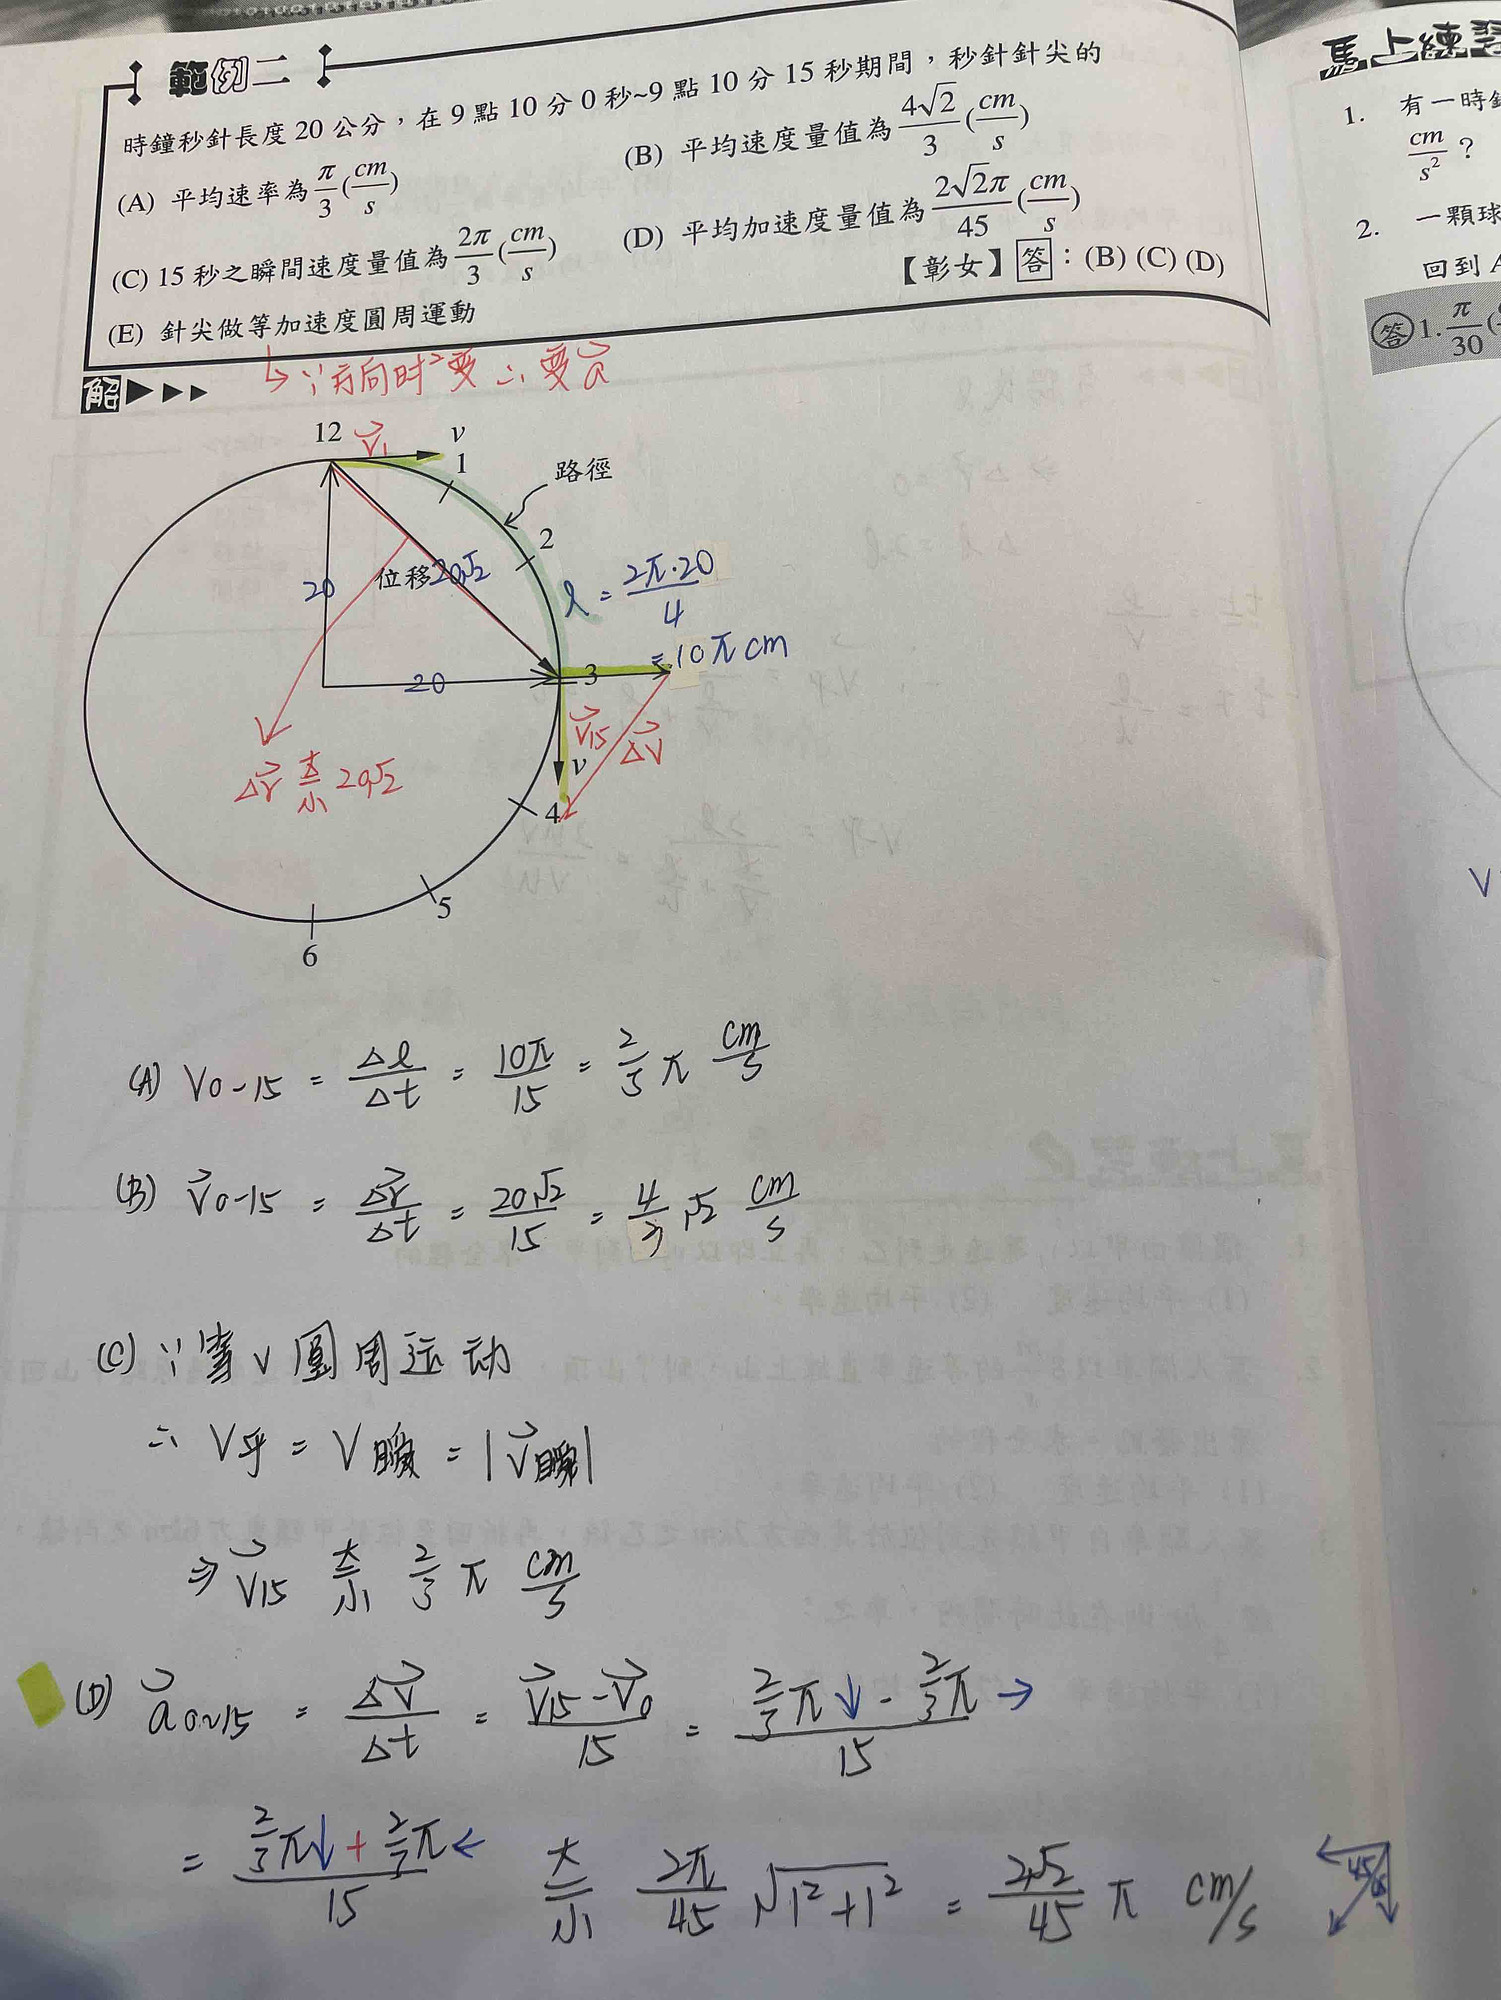 範例二
時鐘秒針長度 20 公分，在 9 點 10 分 0 秒~9 點 10 分 15 秒期間，秒針針尖的
(A) 平均速率為 π/3 (cm/s)
(B) 平均速度量值為 4√2/3 (cm/s)
(C) 15 秒之瞬間速度量值為 2π/3 (cm/s)
(D) 平均加速度量值為 2√2π/45 (cm/s)
(E) 針尖做等加速度圓周運動
【彰女】答：(B) (C) (D)
↳ ∵方向时²變 ∴變a⃗
解
12 v⃗₁ v
1
路徑
2
20 位移20√2
l = 2π·20/4
= 10π cm
20
3
v⃗15 Δv⃗
v
Δr⃗ 大小 20√2
4
5
6
(A) v0-15 = Δl/Δt = 10π/15 = 2/3 π cm/s
(B) v⃗0-15 = Δr⃗/Δt = 20√2/15 = 4/3 √2 cm/s
(C) ∵等v圓周运动
∴ v平 = v瞬 = |v⃗瞬|
⇒ v⃗15 大小 2/3 π cm/s
(D) a⃗0~15 = Δv⃗/Δt = (v⃗15 - v⃗0)/15 = (2/3 π↓ - 2/3 π→)/15
= (2/3 π↓ + 2/3 π←)/15 大小 2π/45 √(1²+1²) = 2√2/45 π cm/s
45
馬上練習
1. 有一時鐘
cm/s² ?
2. 一顆球
回到 A
答 1. π/30 (
V